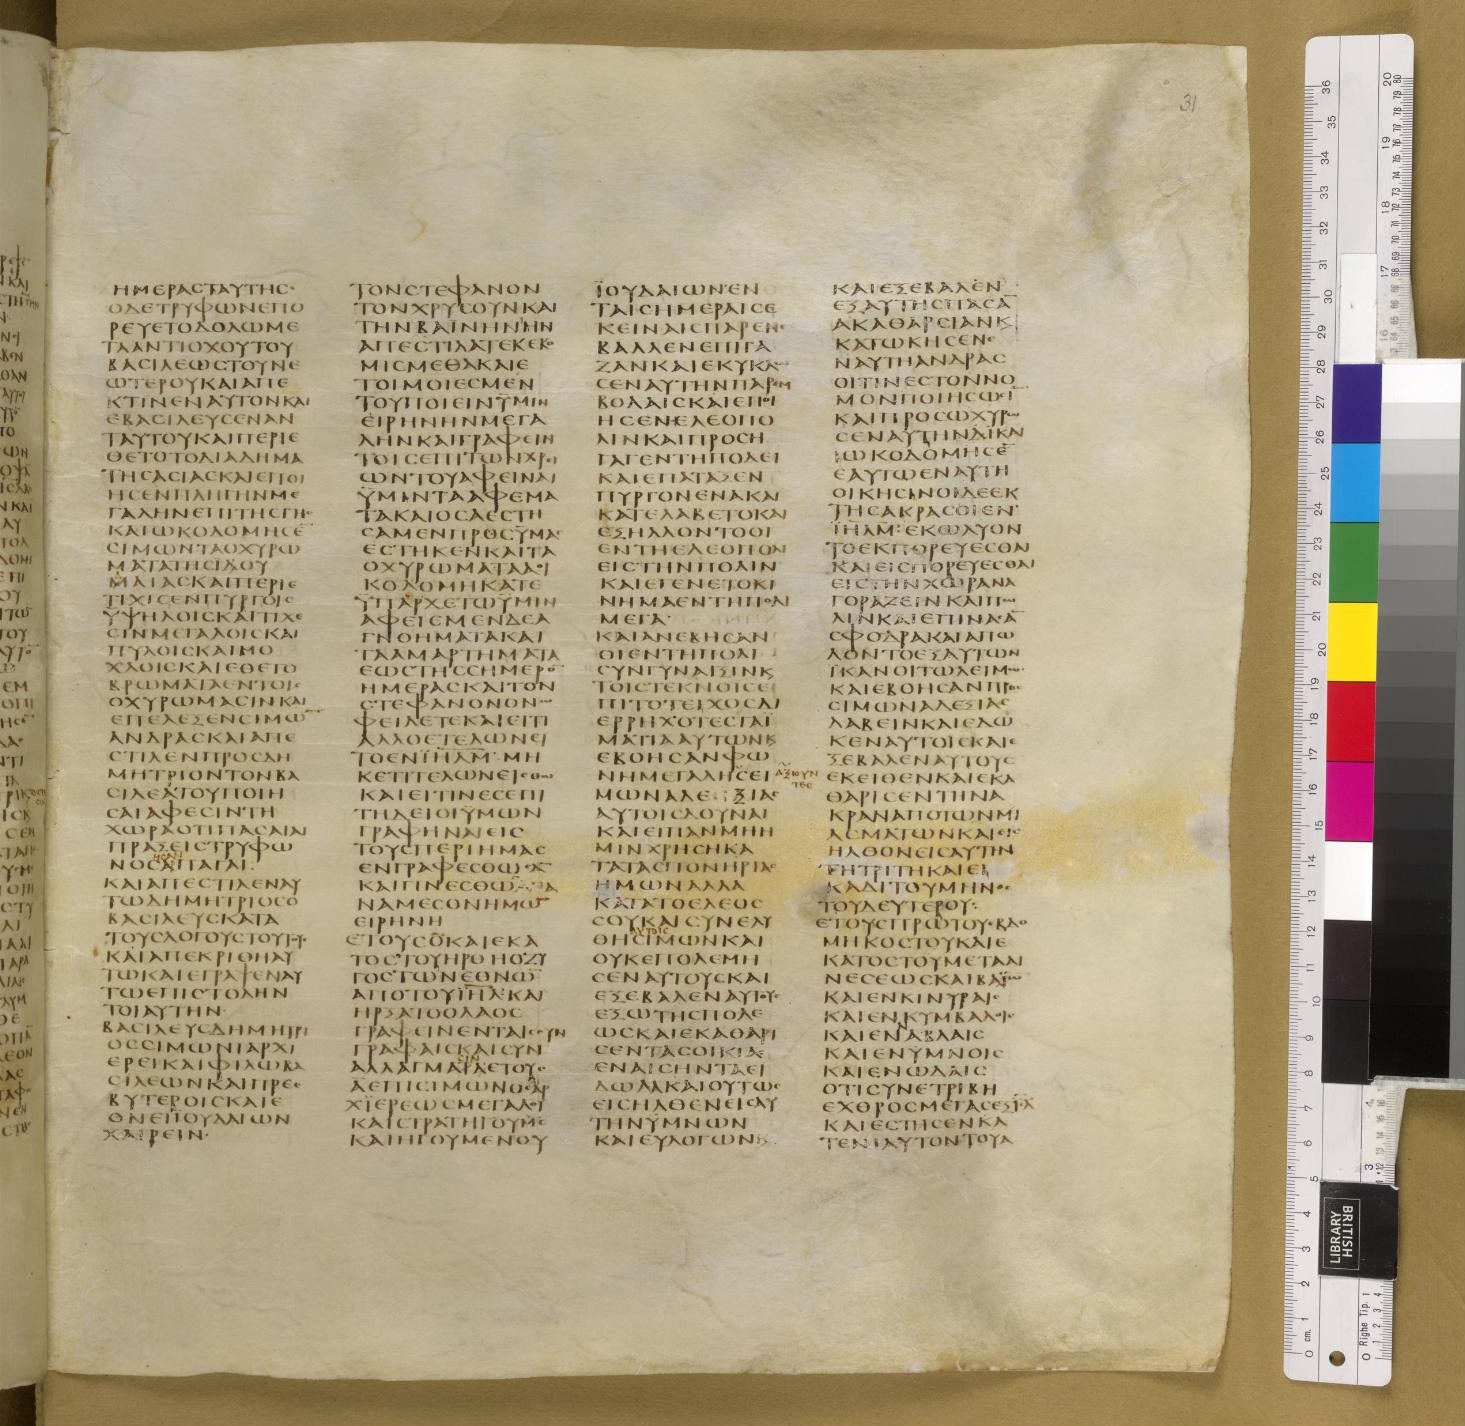 31
ΗΜΕΡΑΣΤΑΥΤΗΣ·
ΟΔΕΤΡΥΦΩΝΕΠΟ
ΡΕΥΕΤΟΔΟΛΩΜΕ
ΤΑΑΝΤΙΟΧΟΥΤΟΥ
ΒΑΣΙΛΕΩΣΤΟΥΝΕ
ΩΤΕΡΟΥΚΑΙΑΠΕ
ΚΤΙΝΕΝΑΥΤΟΝΚΑΙ
ΕΒΑΣΙΛΕΥΣΕΝΑΝ
ΤΑΥΤΟΥΚΑΙΠΕΡΙΕ
ΘΕΤΟΤΟΔΙΑΔΗΜΑ
ΤΗΣΑΣΙΑΣΚΑΙΕΠΟΙ
ΗΣΕΝΠΛΗΓΗΝΜΕ
ΓΑΛΗΝΕΠΙΤΗΣΓΗΣ
ΚΑΙΩΚΟΔΟΜΗΣΕ̅
ΣΙΜΩΝΤΑΟΧΥΡΩ
ΜΑΤΑΤΗΣΙΔΟΥ
ΜΑΙΑΣΚΑΙΠΕΡΙΕ
ΤΙΧΙΣΕΝΠΥΡΓΟΙΣ
ΥΨΗΛΟΙΣΚΑΙΤΙΧΕ
ΣΙΝΜΕΓΑΛΟΙΣΚΑΙ
ΠΥΛΟΙΣΚΑΙΜΟ
ΧΛΟΙΣΚΑΙΕΘΕΤΟ
ΒΡΩΜΑΤΑΕΝΤΟΙΣ
ΟΧΥΡΩΜΑΣΙΝΚΑΙ
ΕΠΕΛΕΞΕΝΣΙΜΩ̅
ΑΝΔΡΑΣΚΑΙΑΠΕ
ΣΤΙΛΕΝΠΡΟΣΔΗ
ΜΗΤΡΙΟΝΤΟΝΒΑ
ΣΙΛΕΑΤΟΥΠΟΙΗ
ΣΑΙΑΦΕΣΙΝΤΗ
ΧΩΡΑΟΤΙΠΑΣΑΙΑΙ
ΠΡΑΞΕΙΣΤΡΥΦΩ
ΝΟΣΑΡΠΑΓΑΙ:
ΚΑΙΑΠΕΣΤΙΛΕΝΑΥ
ΤΩΔΗΜΗΤΡΙΟΣΟ
ΒΑΣΙΛΕΥΣΚΑΤΑ
ΤΟΥΣΛΟΓΟΥΣΤΟΥΤΟΥΣ
ΚΑΙΑΠΕΚΡΙΘΗΑΥ
ΤΩΚΑΙΕΓΡΑΨΕΝΑΥ
ΤΩΕΠΙΣΤΟΛΗΝ
ΤΟΙΑΥΤΗΝ·
ΒΑΣΙΛΕΥΣΔΗΜΗΤΡΙ
ΟΣΣΙΜΩΝΙΑΡΧΙ
ΕΡΕΙΚΑΙΦΙΛΩΒΑ
ΣΙΛΕΩΝΚΑΙΠΡΕΣ
ΒΥΤΕΡΟΙΣΚΑΙΕ
ΘΝΕΙΪΟΥΔΑΙΩΝ
ΧΑΙΡΕΙΝ·
ΤΟΝΣΤΕΦΑΝΟΝ
ΤΟΝΧΡΥΣΟΥΝΚΑΙ
ΤΗΝΒΑΪΝΗΝΗΝ
ΑΠΕΣΤΙΛΑΤΕΚΕΚΟ
ΜΙΣΜΕΘΑΚΑΙΕ
ΤΟΙΜΟΙΕΣΜΕΝ
ΤΟΥΠΟΙΕΙΝΫΜΙΝ
ΕΙΡΗΝΗΝΜΕΓΑ
ΛΗΝΚΑΙΓΡΑΦΕΙΝ
ΤΟΙΣΕΠΙΤΩΝΧΡΙ
ΩΝΤΟΥΑΦΕΙΝΑΙ
ΫΜΙΝΤΑΑΦΕΜΑ
ΤΑΚΑΙΟΣΑΕΣΤΗ
ΣΑΜΕΝΠΡΟΣΫΜΑΣ
ΕΣΤΗΚΕΝΚΑΙΤΑ
ΟΧΥΡΩΜΑΤΑΑΟΙ
ΚΟΔΟΜΗΚΑΤΕ
ΥΠΑΡΧΕΤΩΫΜΙΝ
ΑΦΕΙΕΜΕΝΔΕΑ
ΓΝΟΗΜΑΤΑΚΑΙ
ΤΑΑΜΑΡΤΗΜΑΤΑ
ΕΩΣΤΗΣΣΗΜΕΡΟ̅
ΗΜΕΡΑΣΚΑΙΤΟΝ
ΣΤΕΦΑΝΟΝΟΝ
ΦΕΙΛΕΤΕΚΑΙΕΙΤΙ
ΑΛΛΟΕΤΕΛΩΝΕΙ
ΤΟΕΝΪΗΛΜ̅·ΜΗ
ΚΕΤΙΤΕΛΩΝΕΙΣΘΩ
ΚΑΙΕΙΤΙΝΕΣΕΠΙ
ΤΗΔΕΙΟΙΫΜΩΝ
ΓΡΑΦΗΝΑΙΕΙΣ
ΤΟΥΣΠΕΡΙΗΜΑΣ
ΕΝΓΡΑΦΕΣΘΩΣΑ̅
ΚΑΙΓΙΝΕΣΘΩΑΝΑ
ΝΑΜΕΣΟΝΗΜΩ̅
ΕΙΡΗΝΗ
ΕΤΟΥΣΟ̅ΚΑΙΕΚΑ
ΤΟΣΤΟΥΗΡΘΗΟΖΥ
ΓΟΣΤΩΝΕΘΝΩ̅
ΑΠΟΤΟΥΪΗΛ̅·ΚΑΙ
ΗΡΞΑΤΟΟΛΑΟΣ
ΓΡΑΦΕΙΝΕΝΤΑΙΣΣΥΝ
ΓΡΑΦΑΙΣΚΑΙΣΥΝ
ΑΛΛΑΓΜΑΣΙΝΕΤΟΥΣ
ΑΕΠΙΣΙΜΩΝΟΣΑΡ
ΧΪΕΡΕΩΣΜΕΓΑΛΟΥ
ΚΑΙΣΤΡΑΤΗΓΟΥΜΕ
ΚΑΙΗΓΟΥΜΕΝΟΥ
ΪΟΥΔΑΙΩΝ·ΕΝ
ΤΑΙΣΗΜΕΡΑΙΣΕ
ΚΕΙΝΑΙΣΠΑΡΕΝΕ
ΒΑΛΛΕΝΕΠΙΓΑ
ΖΑΝΚΑΙΕΚΥΚΛΩ
ΣΕΝΑΥΤΗΝΠΑΡΕΜ
ΒΟΛΑΙΣΚΑΙΕΠΟΙ
ΗΣΕΝΕΛΕΟΠΟ
ΛΙΝΚΑΙΠΡΟΣΗ
ΓΑΓΕΝΤΗΠΟΛΕΙ
ΚΑΙΕΠΑΤΑΞΕΝ
ΠΥΡΓΟΝΕΝΑΚΑΙ
ΚΑΤΕΛΑΒΕΤΟΚΑΙ
ΕΞΗΛΛΟΝΤΟΟΙ
ΕΝΤΗΕΛΕΟΠΟΛΙ
ΕΙΣΤΗΝΠΟΛΙΝ
ΚΑΙΕΓΕΝΕΤΟΚΙ
ΝΗΜΑΕΝΤΗΠΟΛΙ
ΜΕΓΑ
ΚΑΙΑΝΕΒΗΣΑΝ
ΟΙΕΝΤΗΠΟΛΙ
ΣΥΝΓΥΝΑΙΞΙΝΚ
ΤΟΙΣΤΕΚΝΟΙΣΕ
ΠΙΤΟΤΕΙΧΟΣΔΙ
ΕΡΡΗΧΟΤΕΣΤΑΪ
ΜΑΤΙΑΑΥΤΩΝΚ
ΕΒΟΗΣΑΝΦΩ
ΝΗΜΕΓΑΛΗΣΕΙ
ΑΞΙΟΥΝ
ΤΕΣ
ΜΩΝΑΔΕΞΙΑΣ
ΑΥΤΟΙΣΔΟΥΝΑΙ
ΚΑΙΕΙΠΑΝΜΗΗ
ΜΙΝΧΡΗΣΗΚΑ
ΤΑΤΑΣΠΟΝΗΡΙΑΣ
ΗΜΩΝΑΛΛΑ
ΚΑΤΑΤΟΕΛΕΟΣ
ΣΟΥΚΑΙΣΥΝΕΛΥ
ΑΥΤΟΙΣ
ΘΗΣΙΜΩΝΚΑΙ
ΟΥΚΕΠΟΛΕΜΗ
ΣΕΝΑΥΤΟΥΣΚΑΙ
ΕΞΕΒΑΛΕΝΑΥΤΟΥΣ
ΕΞΩΤΗΣΠΟΛΕ
ΩΣΚΑΙΕΚΑΘΑΡΙ
ΣΕΝΤΑΣΟΙΚΙΑΣ
ΕΝΑΙΣΗΝΤΑΕΙ
ΔΩΛΑΚΑΙΟΥΤΩΣ
ΕΙΣΗΛΘΕΝΕΙΣΑΥ
ΤΗΝΫΜΝΩΝ
ΚΑΙΕΥΛΟΓΩΝ
ΚΑΙΕΞΕΒΑΛΕΝ
ΕΞΑΥΤΗΣΠΑΣΑ̅
ΑΚΑΘΑΡΣΙΑΝΚ
ΚΑΤΩΚΗΣΕΝ
ΝΑΥΤΗΑΝΔΡΑΣ
ΟΙΤΙΝΕΣΤΟΝΝΟ
ΜΟΝΠΟΙΗΣΩΣΙ̅
ΚΑΙΠΡΟΣΩΧΥΡΩ
ΣΕΝΑΥΤΗΝΚΑΙ
ΩΚΟΔΟΜΗΣΕ̅
ΕΑΥΤΩΕΝΑΥΤΗ
ΟΙΚΗΣΙΝΟΙΔΕΕΚ
ΤΗΣΑΚΡΑΣΟΙΕΝ
ΪΗΛΜ̅·ΕΚΩΛΥΟΝ
ΤΟΕΚΠΟΡΕΥΕΣΘΑΙ
ΚΑΙΕΙΣΠΟΡΕΥΕΣΘΑΙ
ΕΙΣΤΗΝΧΩΡΑΝΑ
ΓΟΡΑΖΕΙΝΚΑΙΠΩ
ΛΙΝΚΑΙΕΠΙΝΑΣΑ̅
ΣΦΟΔΡΑΚΑΙΑΠΩ
ΛΟΝΤΟΕΞΑΥΤΩΝ
ΪΚΑΝΟΙΤΩΛΕΙΜΩ
ΚΑΙΕΒΟΗΣΑΝΠΡΟΣ
ΣΙΜΩΝΑΔΕΞΙΑΣ
ΛΑΒΕΙΝΚΑΙΕΔΩ
ΚΕΝΑΥΤΟΙΣΚΑΙΕ
ΞΕΒΑΛΕΝΑΥΤΟΥΣ
ΕΚΕΙΘΕΝΚΑΙΕΚΑ
ΘΑΡΙΣΕΝΤΗΝΑ
ΚΡΑΝΑΠΟΤΩΝΜΙ
ΑΣΜΑΤΩΝΚΑΙΕΙΣ
ΗΛΘΟΝΕΙΣΑΥΤΗΝ
ΤΗΤΡΙΤΗΚΑΙΕΙ
ΚΑΔΙΤΟΥΜΗΝΟΣ
ΤΟΥΔΕΥΤΕΡΟΥ:
ΕΤΟΥΣΠΡΩΤΟΥΕΒΔΟ
ΜΗΚΟΣΤΟΥΚΑΙΕ
ΚΑΤΟΣΤΟΥΜΕΤΑΑΙ
ΝΕΣΕΩΣΚΑΙΒΑΪΩΝ
ΚΑΙΕΝΚΙΝΥΡΑΙΣ
ΚΑΙΕΝΚΥΜΒΑΛΟΙΣ
ΚΑΙΕΝΑΒΛΑΙΣ
ΚΑΙΕΝΫΜΝΟΙΣ
ΚΑΙΕΝΩΔΑΙΣ
ΟΤΙΣΥΝΕΤΡΙΒΗ
ΕΧΘΡΟΣΜΕΓΑΣΕΞΪΗΛ
ΚΑΙΕΣΤΗΣΕΝΚΑ
ΤΕΝΙΑΥΤΟΝΤΟΥΑ
BRITISH
LIBRARY